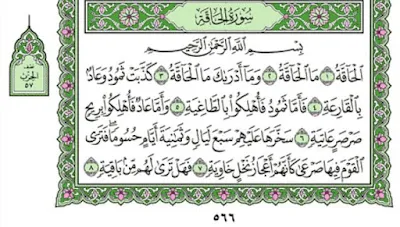 سُورَةُ الحَاقَّةِ
بِسْمِ اللَّهِ الرَّحْمَٰنِ الرَّحِيمِ
الْحَاقَّةُ ١ مَا الْحَاقَّةُ ٢ وَمَا أَدْرَىٰكَ مَا الْحَاقَّةُ ٣ كَذَّبَتْ ثَمُودُ وَعَادٌ
بِالْقَارِعَةِ ٤ فَأَمَّا ثَمُودُ فَأُهْلِكُوا بِالطَّاغِيَةِ ٥ وَأَمَّا عَادٌ فَأُهْلِكُوا بِرِيحٍ
صَرْصَرٍ عَاتِيَةٍ ٦ سَخَّرَهَا عَلَيْهِمْ سَبْعَ لَيَالٍ وَثَمَٰنِيَةَ أَيَّامٍ حُسُومًا ۖ فَتَرَى
الْقَوْمَ فِيهَا صَرْعَىٰ كَأَنَّهُمْ أَعْجَازُ نَخْلٍ خَاوِيَةٍ ٧ فَهَلْ تَرَىٰ لَهُمْ مِنْ بَاقِيَةٍ ٨
الحزب
٥٧
٥٦٦